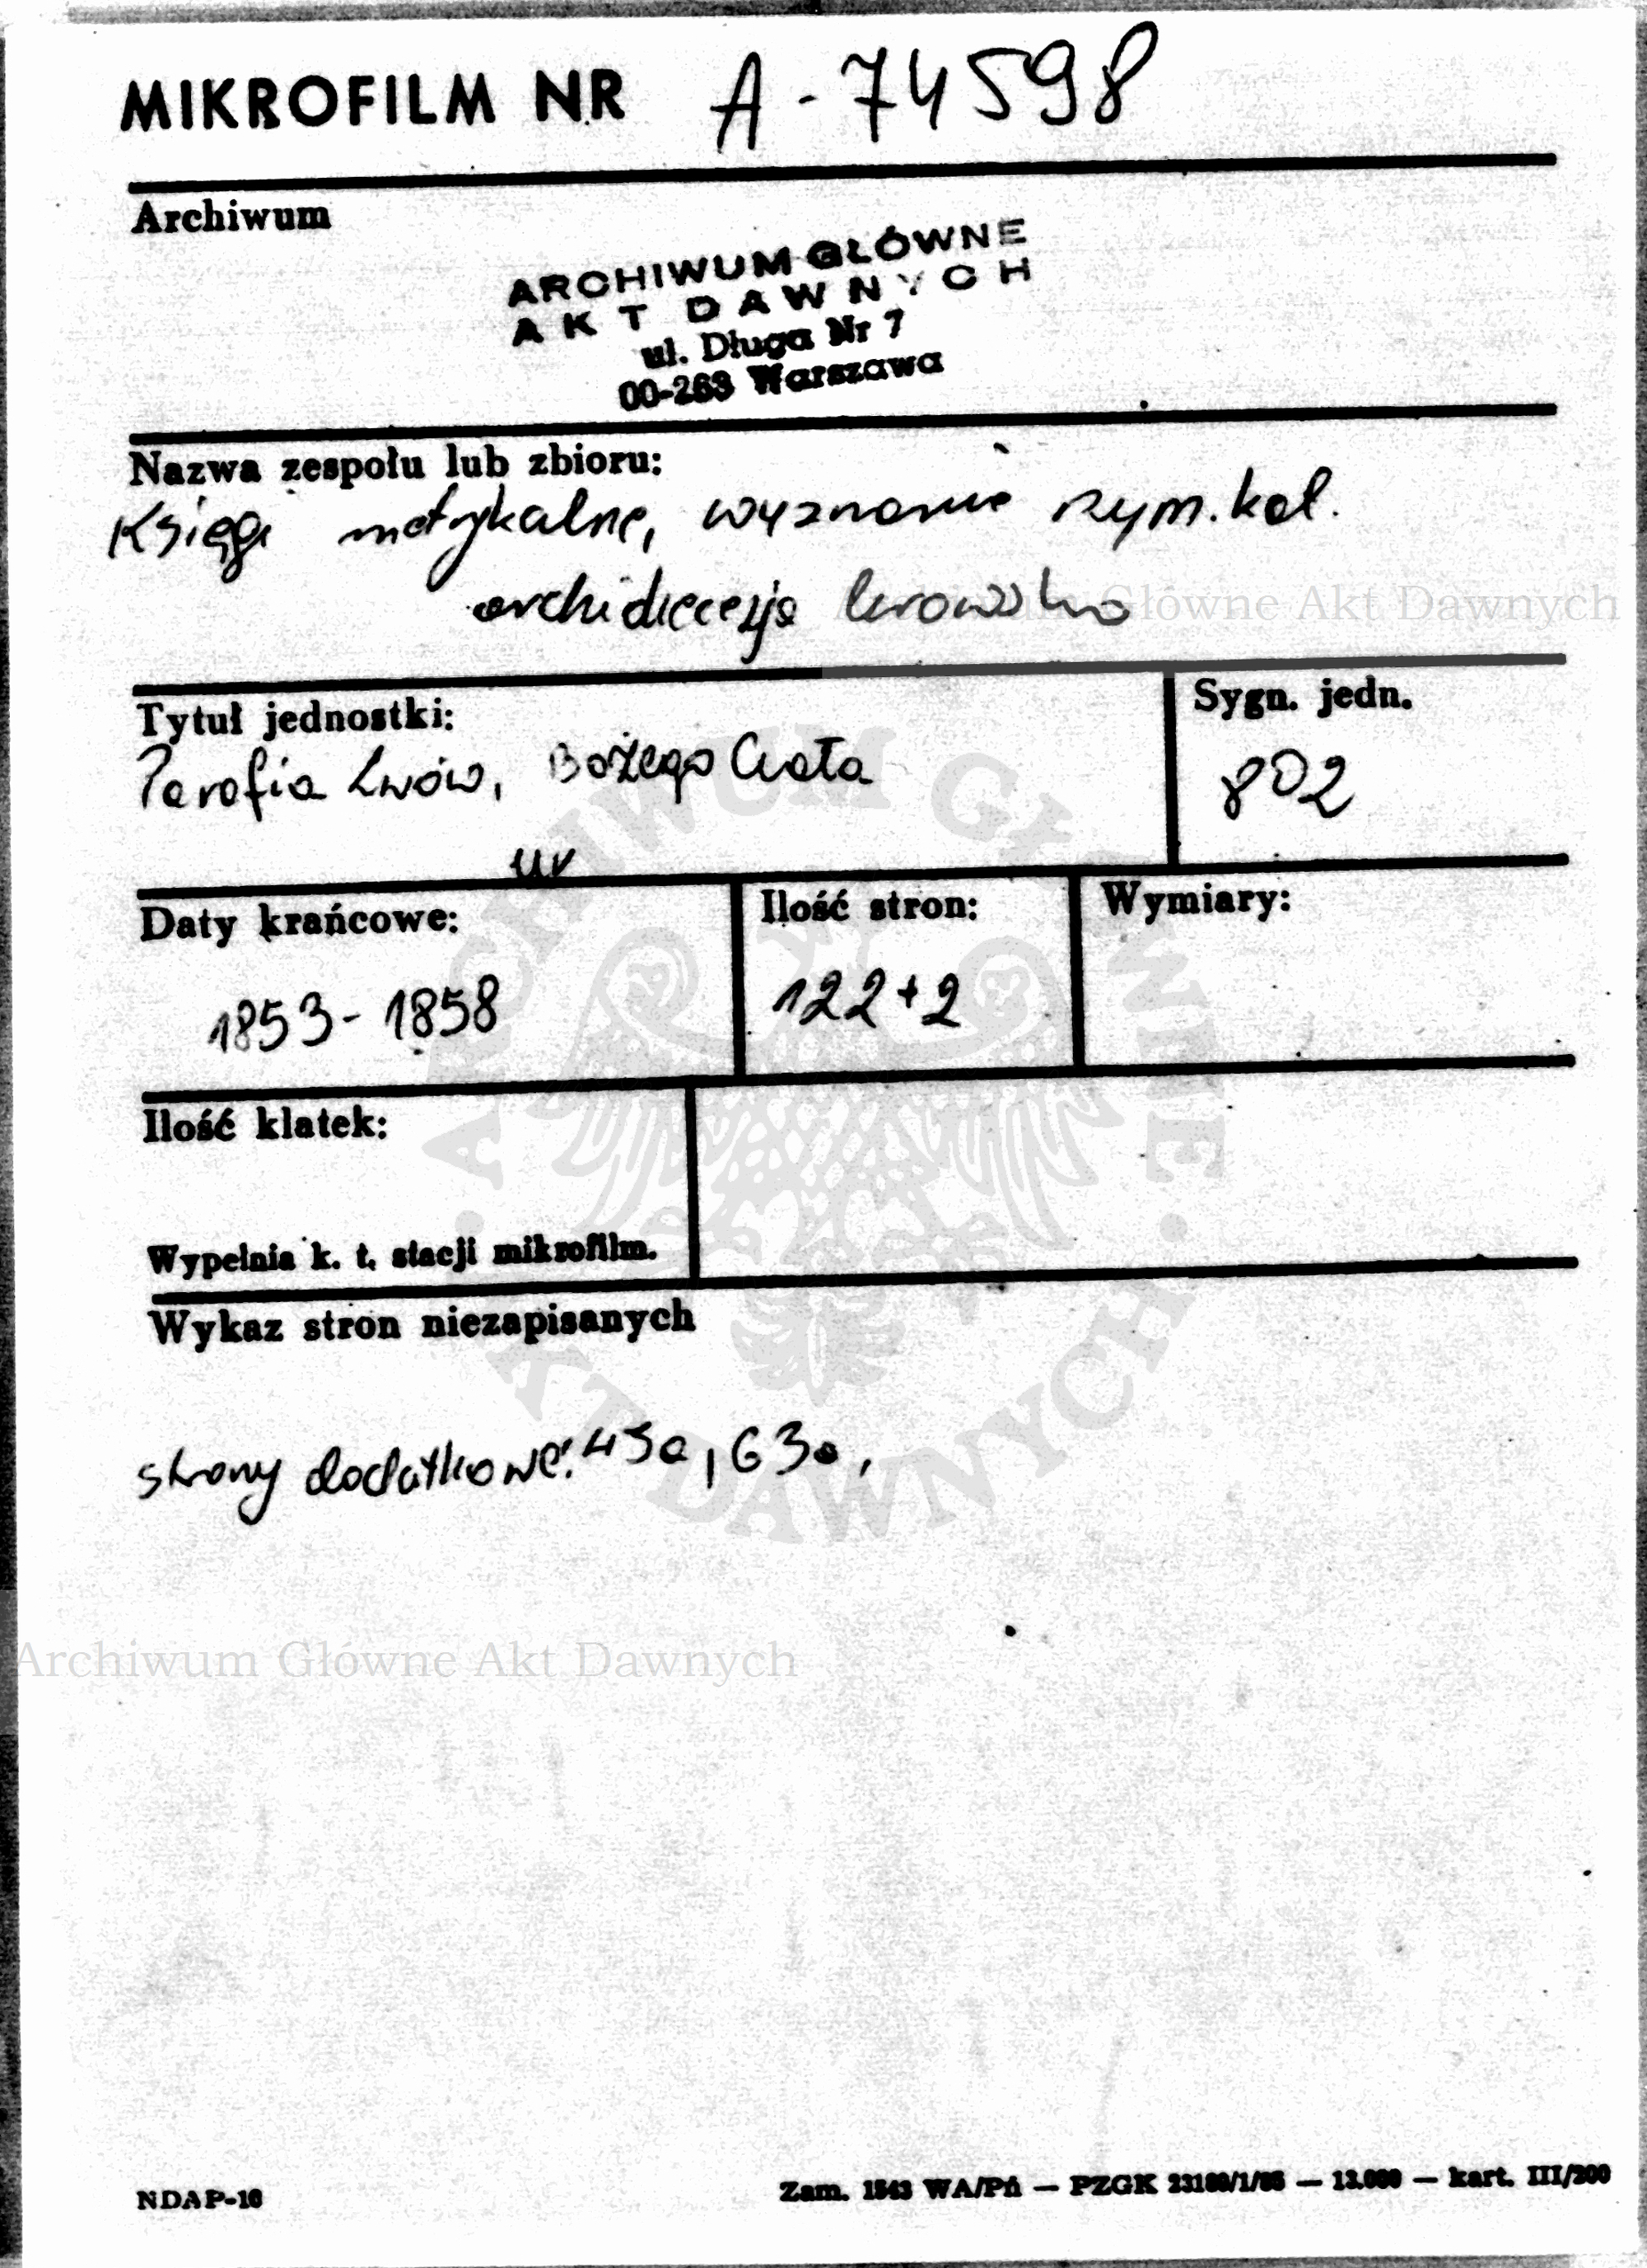 MIKROFILM NR A-74598
Archiwum
ARCHIWUM GŁÓWNE
AKT DAWNYCH
ul. Długa Nr 7
00-263 Warszawa
Nazwa zespołu lub zbioru:
Księgi metrykalne, wyznanie rzym. kat.
archidiecezja lwowska
Główne Akt Dawnych
Tytuł jednostki:
Sygn. jedn.
Parafia Lwów, Bożego Ciała
802
ur
Daty krańcowe:
Ilość stron:
Wymiary:
1853-1858
122+2
Ilość klatek:
Wypełnia k. t. stacji mikrofilm.
Wykaz stron niezapisanych
strony dodatkowe: 43a, 63a,
Archiwum Główne Akt Dawnych
ARCHIWUM GŁÓWNE AKT DAWNYCH
NDAP-10
Zam. 1543 WA/Pń — PZGK — kart. III/200